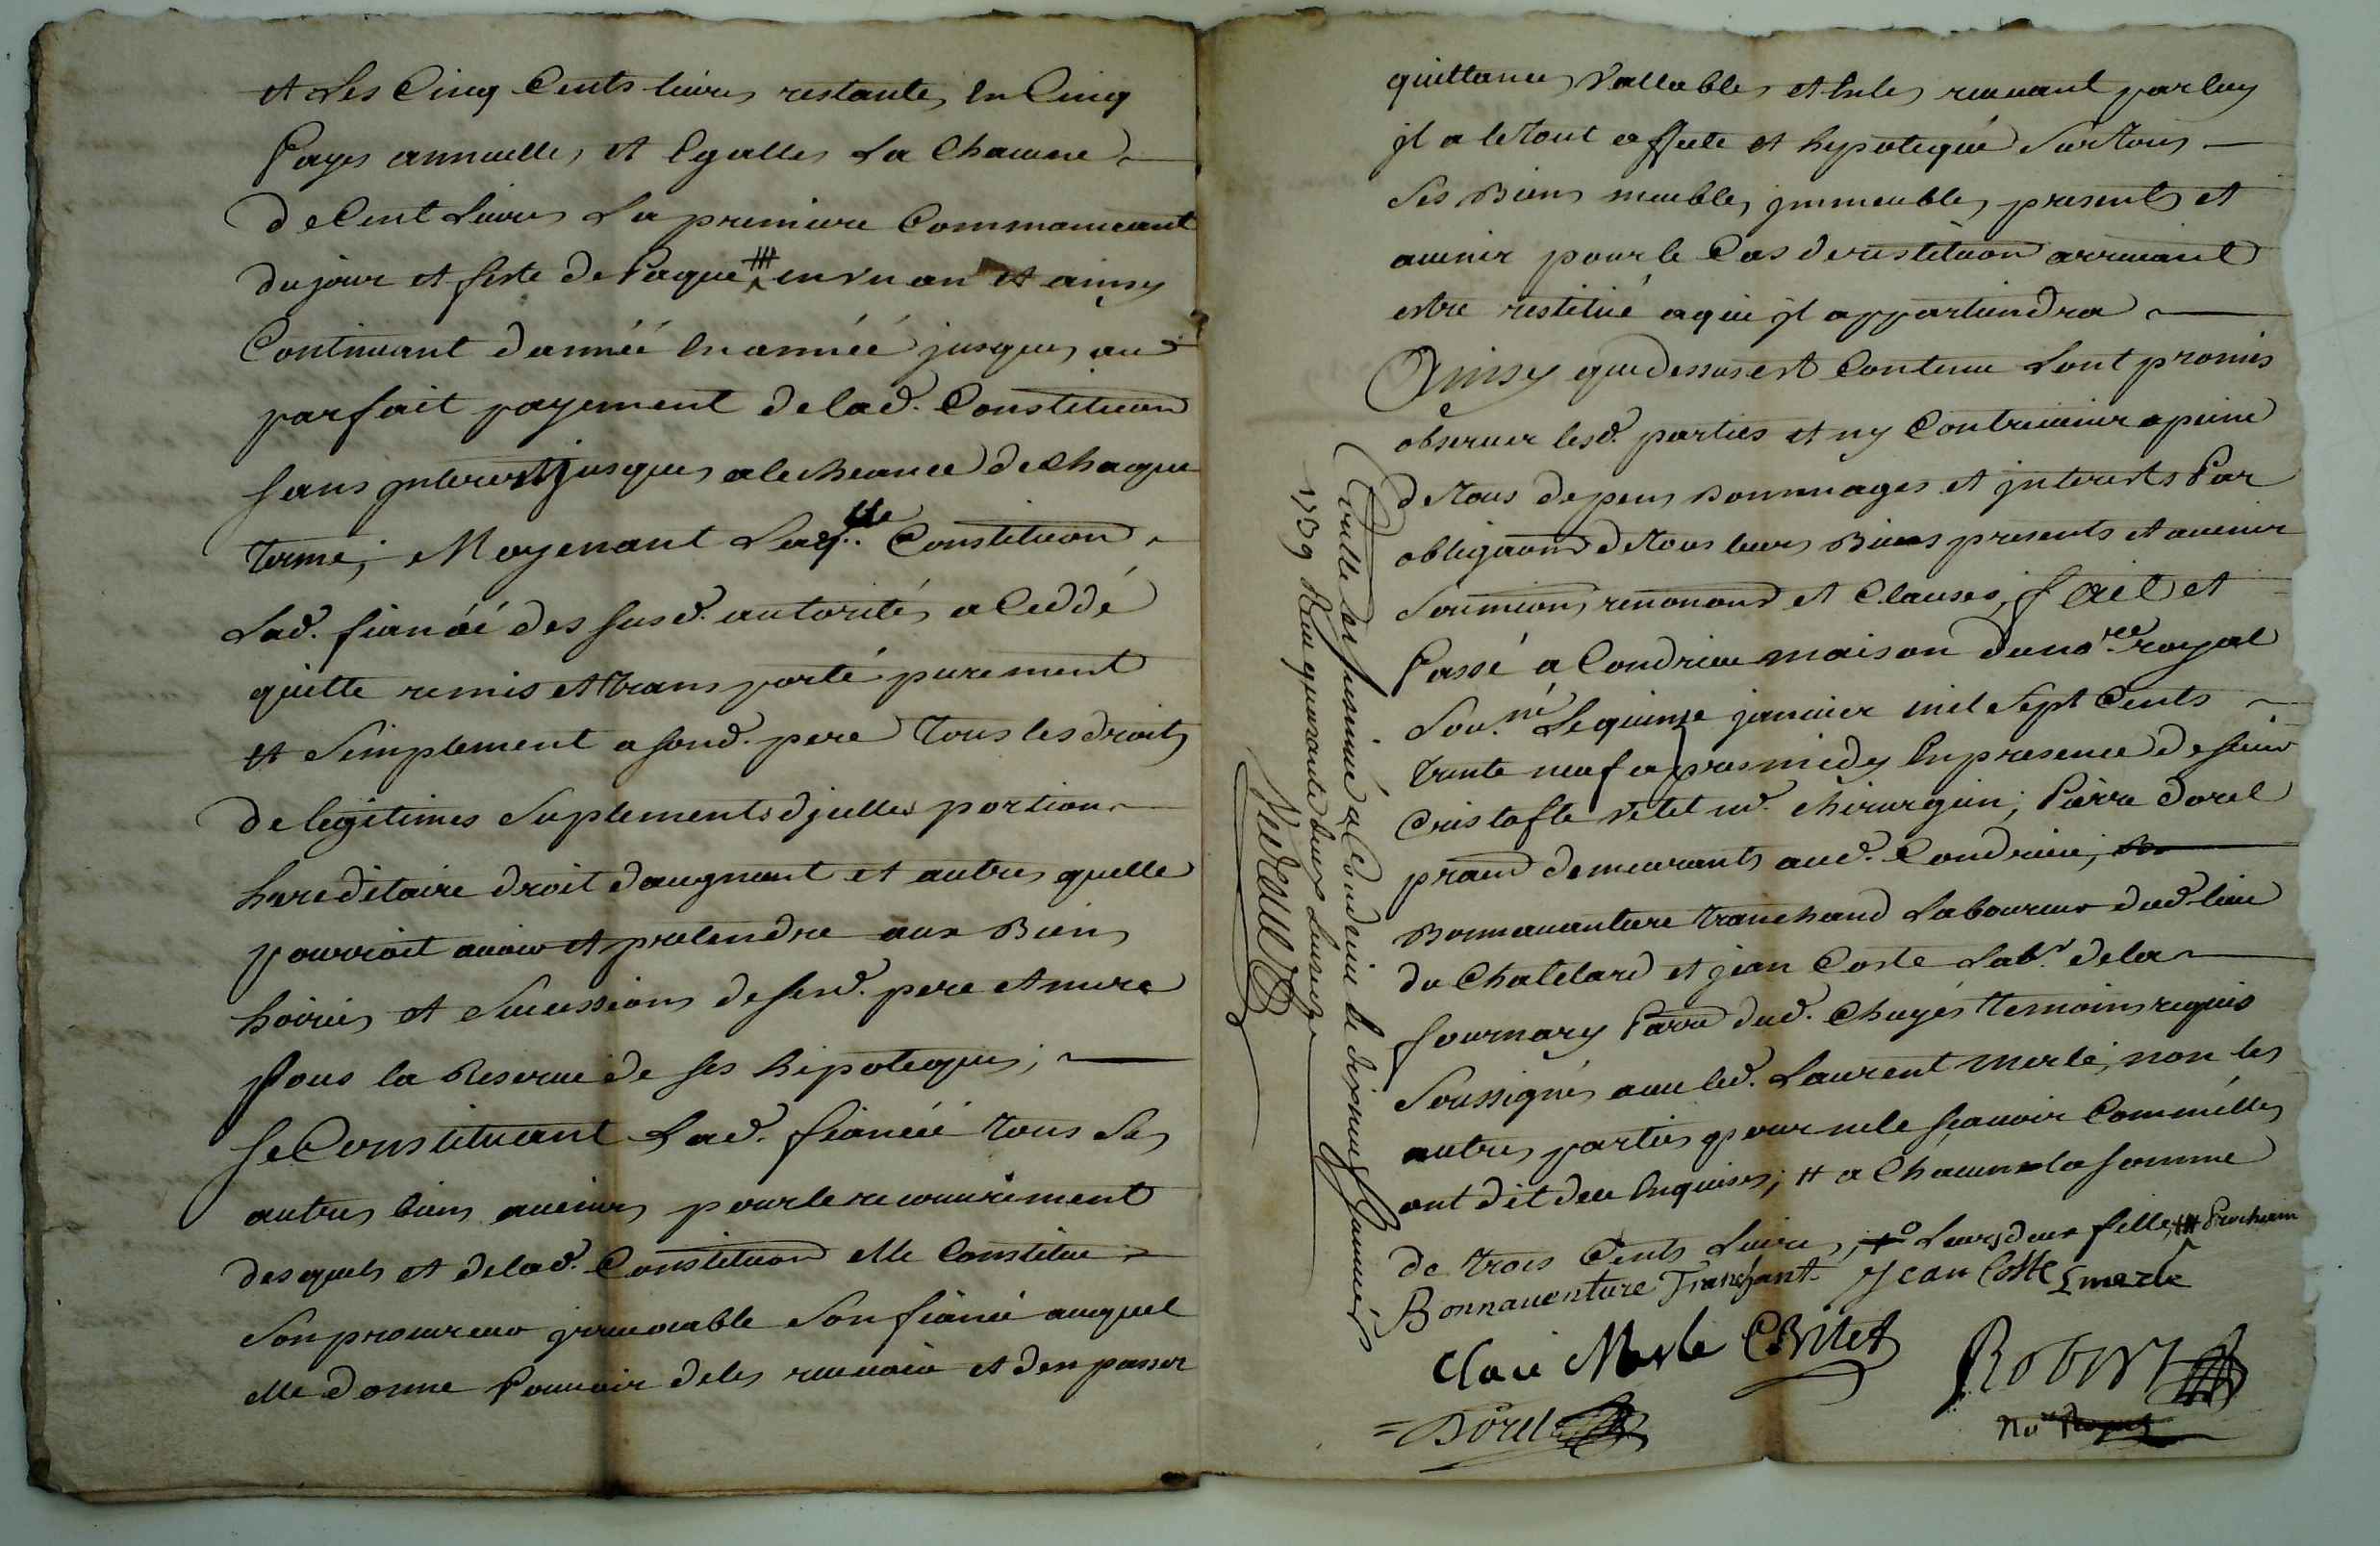 et Les Cinq Cents livres restantes en Cinq
Payes annuelles et Egalles La Chacune
de Cent Livres La premiere Commanceant
du jour et feste de Paque ⧻ en un an et ainsy
Continuant dannéé En année jusques au
parfait payement de lad. Constituon
sans Interest jusques a lecheance de chaque
terme; Moyenant Laq.lle Constituon
Lad. fiancéé des susd. autorités a Ceddé
quitte remis et transporté purement
et Simplement a sond. pere tous les droits
de legitimes Suplements djcelles portion
hereditaire droit daugment et autres quelle
pourroit avoir et pretendre aux Biens
hoiries et Sucessions de send. pere et mere
sous la Reserve de ses hipoteques;
se Constituant Lad. fiancéé tous Ses
autres biens avenir pour le recouvrement
desquels et de lad. Constituon elle Constitue
Son procureur jrrevocable Son fiancé auquel
elle donne Pouvoir de les recevoir et den passer
quittances Vallables et Icelles recevant par luy
jl a le tout affecté et hypotequé Sur tous
Ses Biens meubles jmmeubles presents et
avenir pour le Cas de restituon arrivant
estre restitué a qui jl appartiendra
Ainsy que dessus est Contenu Lont promis
observer lesd. parties et ny Contrevenir a peine
de tous depens dommages et jnterests Par
obligaons de tous leurs Biens presents et avenir
Soumions renonons et Clauses, fait et
Passé a Condrieu maison du no.re royal
Sou.né Le quinze janvier mil Sept Cents
trente neuf apres midy En presence de sieur
Cristofle Vitet m.d chirurgien; Pierre Dorel
pratn demeurants aud. Condrieu;
Bonnavanture tranchand Laboureur dud. lieu
du Chatelard et jean Coste Lab.r de la
fournary Parre dud. Chuyés temoins requis
Soussignés avec led. Laurent merle, non les
autres parties pour ne le sçavoir Comme elles
ont dit de ce Enquises; # a Chacune la somme
de trois Cents Livres, Leurs deux filles, ⧻ Prochain
Bonnauenture Tranchant Jean Coste L merle
Claude Merle C Vitet Robert
Dorel No.re Royal
Controllé et insinué a Condrieu le dixneuf Janvier
1739 Reçu quarante deux livres